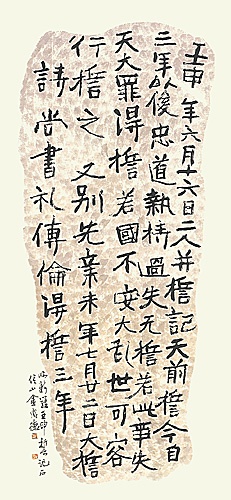 壬申年六月十六日二人幷誓記天前誓今自
三年以後忠道執持過失无誓若此事失
天大罪得誓若國不安大乱世可容
行誓之又別先辛未年七月廿二日大誓
詩尚書礼傳倫得誓三年
新羅壬申誓記石